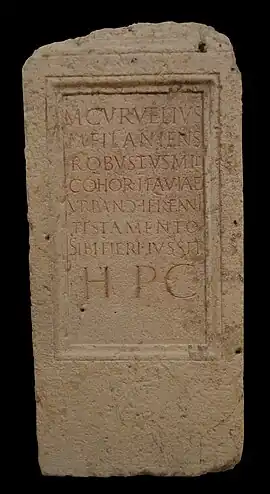 M CVRVELIVS
M FIL ANIENS
ROBVSTVS MIL
COHOR I FLAVIAE
VRBAN Ↄ HERENNI
TESTAMENTO
SIBI FIERI IVSSIT
H P C